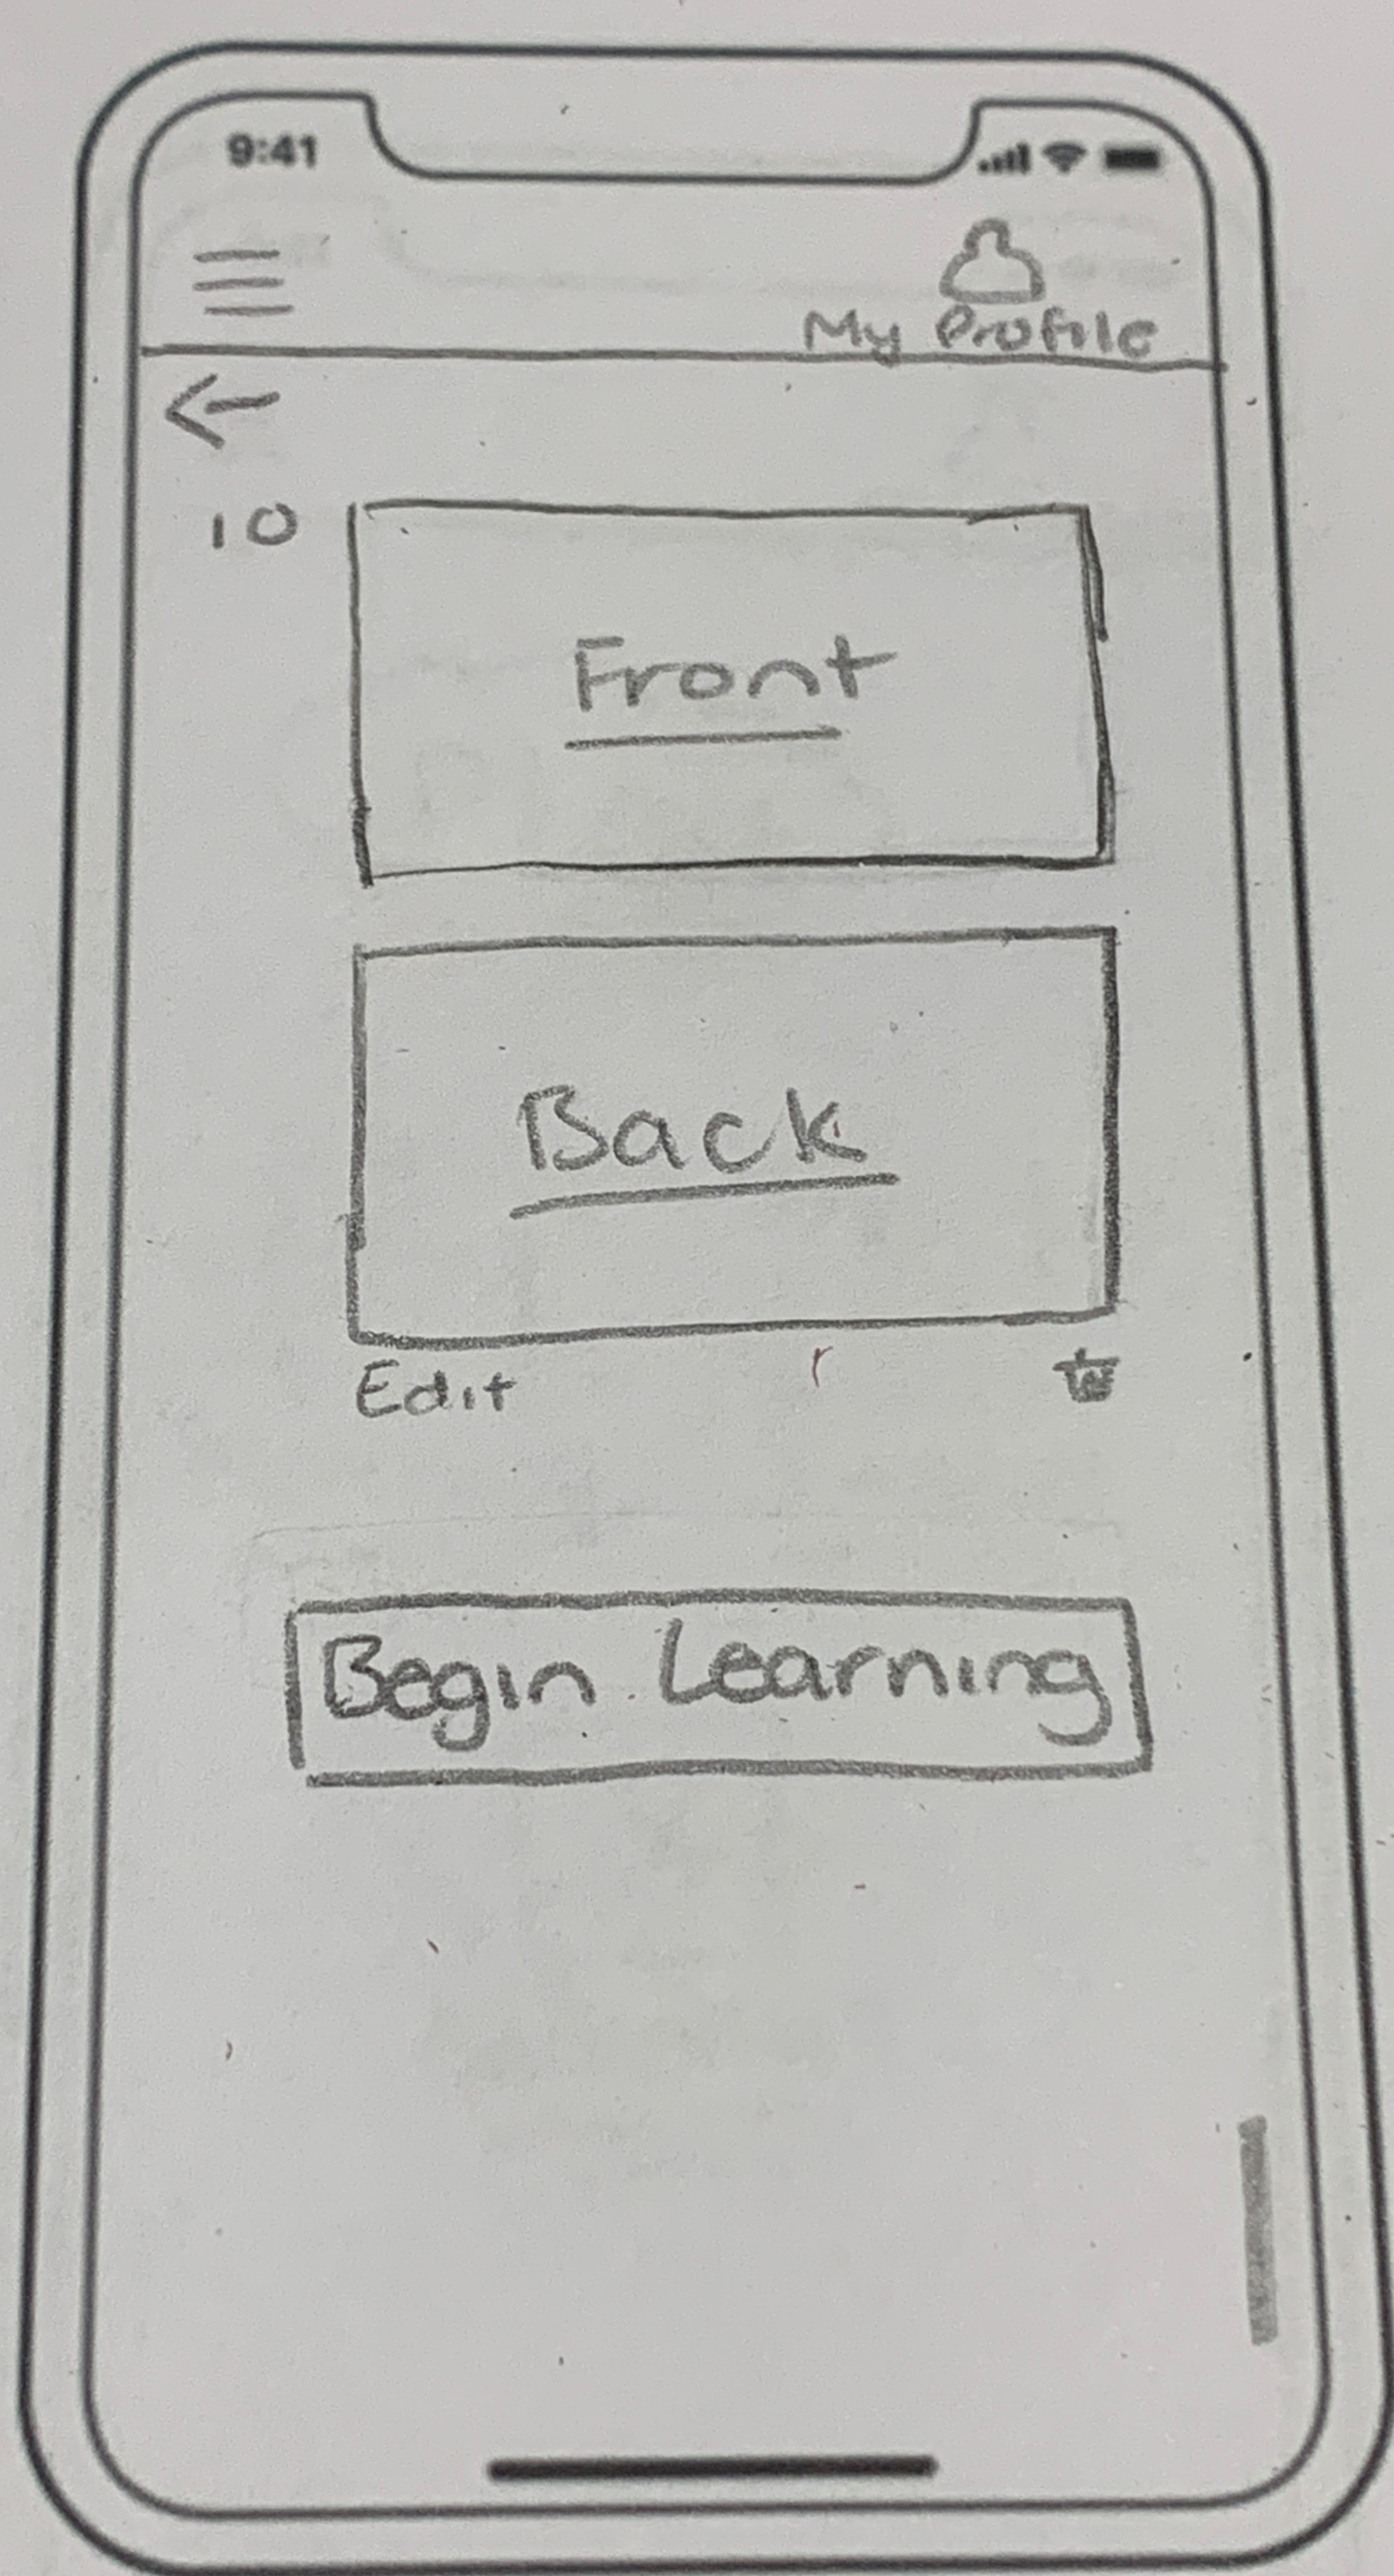 9:41
My Profile
10
Front
Back
Edit
Begin Learning